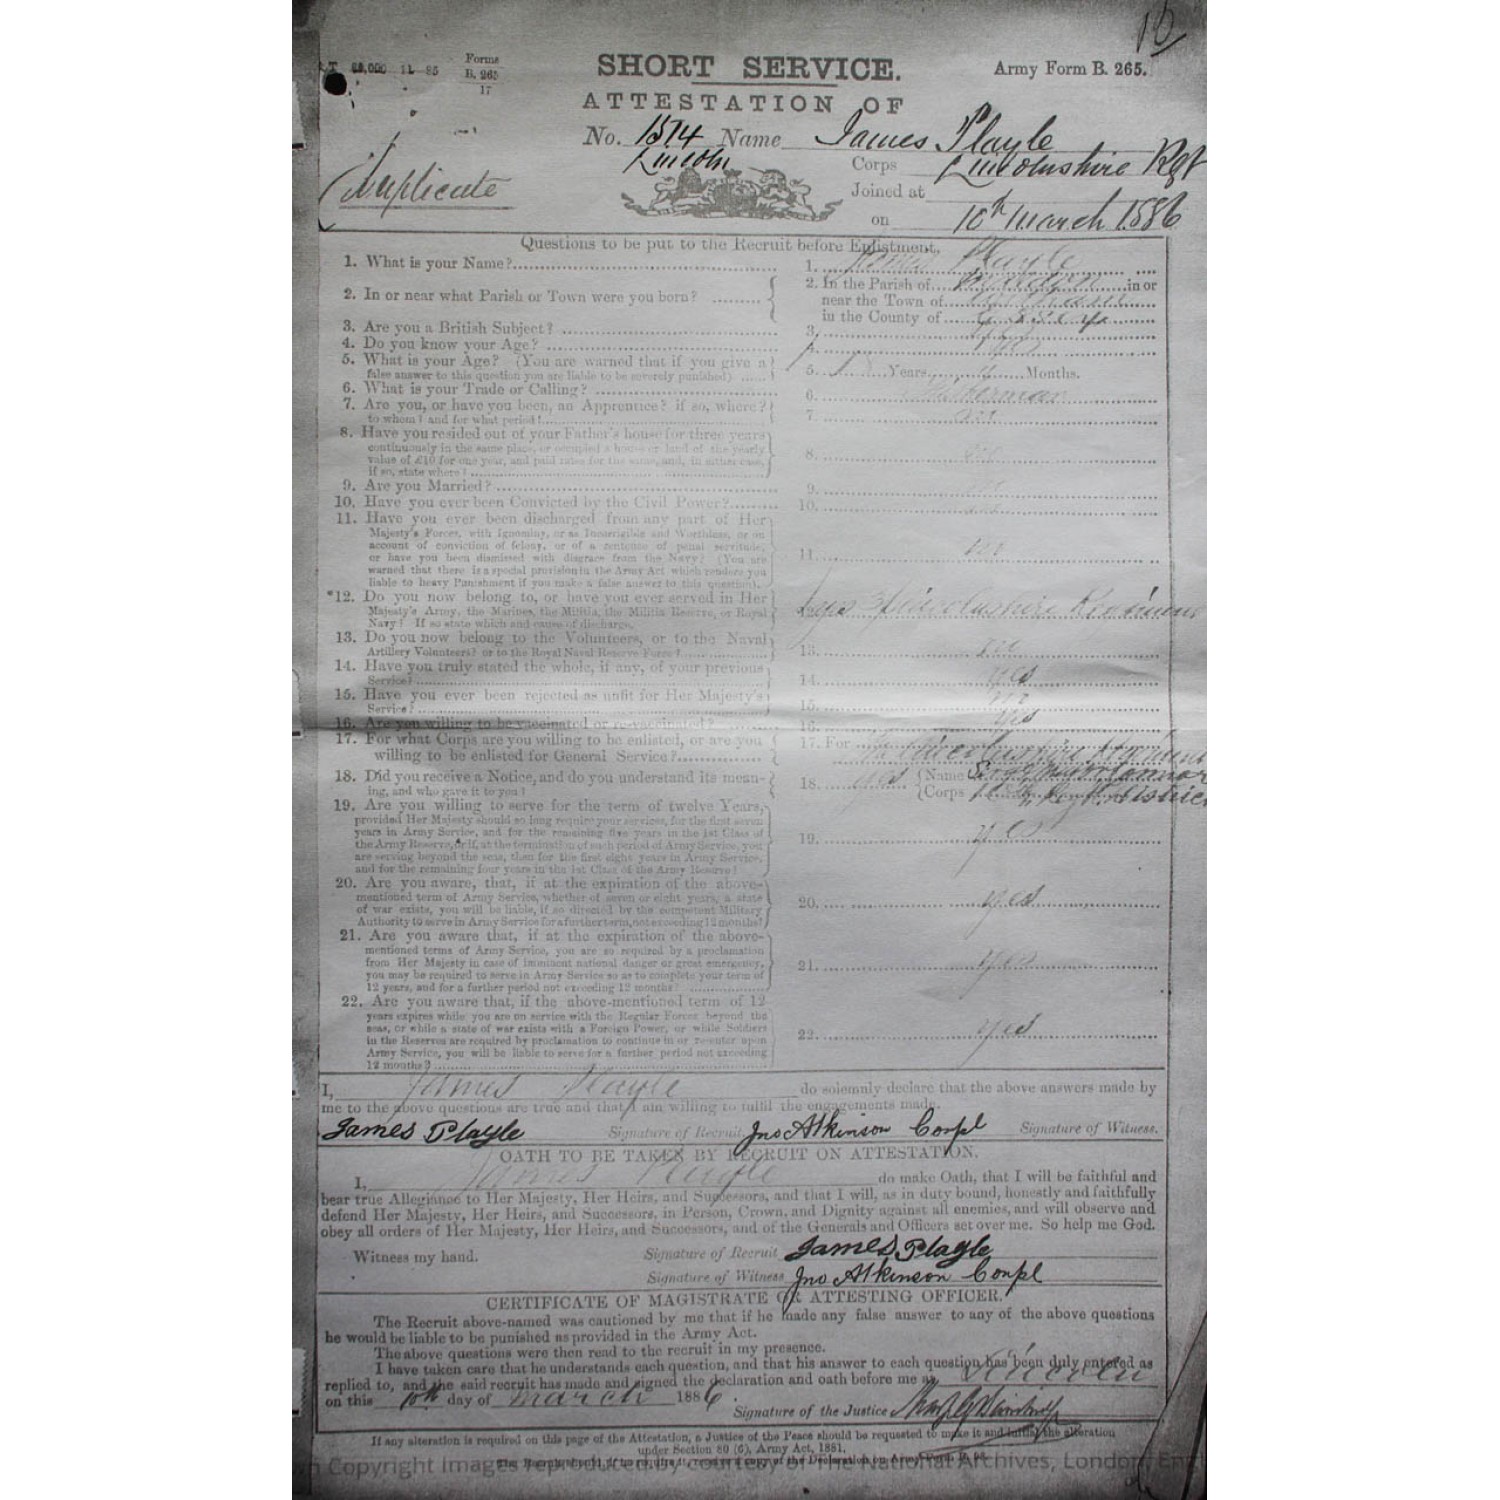 10
Forms
B. 265
17
11 85
SHORT SERVICE.
Army Form B. 265.
ATTESTATION OF
No. 1574 Name James Playle
Lincoln
Corps Lincolnshire Rgt
Duplicate
Joined at
on 10th March 1886
Questions to be put to the Recruit before Enlistment.
1. What is your Name? 1. James Playle
2. In or near what Parish or Town were you born? 2. In the Parish of in or
near the Town of
in the County of Essex
3. Are you a British Subject? 3.
4. Do you know your Age? yes
5. What is your Age? (You are warned that if you give a
false answer to this question you are liable to be severely punished) 5. 18 Years Months.
6. What is your Trade or Calling? 6.
7. Are you, or have you been, an Apprentice? if so, where?
to whom? and for what period? 7. no
8. Have you resided out of your Father's house for three years
continuously in the same place, or occupied a house or land of the yearly
value of £10 for one year, and paid rates for the same, and, in either case,
if so, state where? 8. no
9. Are you Married? 9. no
10. Have you ever been Convicted by the Civil Power? 10. no
11. Have you ever been discharged from any part of Her
Majesty's Forces, with Ignominy, or as Incorrigible and Worthless, or on
account of conviction of felony, or of a sentence of penal servitude,
or have you been dismissed with disgrace from the Navy? (You are
warned that there is a special provision in the Army Act which renders you
liable to heavy Punishment if you make a false answer to this question). 11. no
*12. Do you now belong to, or have you ever served in Her
Majesty's Army, the Marines, the Militia, the Militia Reserve, or Royal
Navy? If so state which and cause of discharge. yes 3 Lincolnshire Regiment
13. Do you now belong to the Volunteers, or to the Naval
Artillery Volunteers? or to the Royal Naval Reserve Force? 13. no
14. Have you truly stated the whole, if any, of your previous
Service? 14. yes
15. Have you ever been rejected as unfit for Her Majesty's
Service? 15. no
16. Are you willing to be vaccinated or re-vaccinated? 16. yes
17. For what Corps are you willing to be enlisted, or are you
willing to be enlisted for General Service? 17. For The Lincolnshire Regiment
18. Did you receive a Notice, and do you understand its mean-
ing, and who gave it to you? 18. yes Name Sergt Major Connor
Corps Regtl District
19. Are you willing to serve for the term of twelve Years,
provided Her Majesty should so long require your services, for the first seven
years in Army Service, and for the remaining five years in the 1st Class of
the Army Reserve, or if, at the termination of such period of Army Service, you
are serving beyond the seas, then for the first eight years in Army Service,
and for the remaining four years in the 1st Class of the Army Reserve? 19. yes
20. Are you aware, that, if at the expiration of the above-
mentioned term of Army Service, whether of seven or eight years, a state
of war exists, you will be liable, if so directed by the competent Military
Authority to serve in Army Service for a further term, not exceeding 12 months? 20. yes
21. Are you aware that, if at the expiration of the above-
mentioned terms of Army Service, you are so required by a proclamation
from Her Majesty in case of imminent national danger or great emergency,
you may be required to serve in Army Service so as to complete your term of
12 years, and for a further period not exceeding 12 months? 21. yes
22. Are you aware that, if the above-mentioned term of 12
years expires while you are on service with the Regular Forces beyond the
seas, or while a state of war exists with a Foreign Power, or while Soldiers
in the Reserves are required by proclamation to continue in or re-enter upon
Army Service, you will be liable to serve for a further period not exceeding
12 months? 22. yes
I, James Playle do solemnly declare that the above answers made by
me to the above questions are true and that I am willing to fulfil the engagements made.
James Playle Signature of Recruit. Jno Atkinson Corpl Signature of Witness.
OATH TO BE TAKEN BY RECRUIT ON ATTESTATION.
I, James Playle do make Oath, that I will be faithful and
bear true Allegiance to Her Majesty, Her Heirs, and Successors, and that I will, as in duty bound, honestly and faithfully
defend Her Majesty, Her Heirs, and Successors, in Person, Crown, and Dignity against all enemies, and will observe and
obey all orders of Her Majesty, Her Heirs, and Successors, and of the Generals and Officers set over me. So help me God.
Witness my hand. Signature of Recruit James Playle
Signature of Witness Jno Atkinson Corpl
CERTIFICATE OF MAGISTRATE OR ATTESTING OFFICER.
The Recruit above-named was cautioned by me that if he made any false answer to any of the above questions
he would be liable to be punished as provided in the Army Act.
The above questions were then read to the recruit in my presence.
I have taken care that he understands each question, and that his answer to each question has been duly entered as
replied to, and the said recruit has made and signed the declaration and oath before me at Lincoln
on this 10th day of March 1886.
Signature of the Justice
If any alteration is required on this page of the Attestation, a Justice of the Peace should be requested to make it and initial the alteration
under Section 80 (6), Army Act, 1881.
The Recruit should, if he require it, receive a copy of the Declaration on Army Form B.
Copyright Images reproduced by courtesy of The National Archives, London, Eng